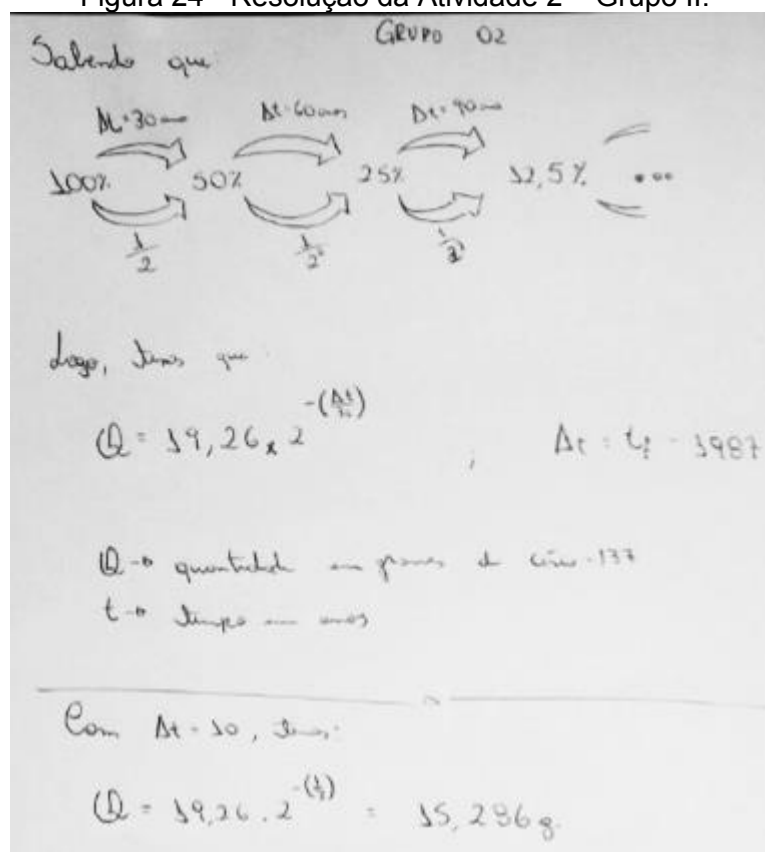 Figura 24 - Resolução da Atividade 2 – Grupo II.
GRUPO 02
Sabendo que
Δt=30 anos Δt=60 anos Δt=90 anos
100% 50% 25% 12,5% ...
1/2 1/2 1/2
Logo, temos que
Q = 19,26 x 2^-(Δt/30) ; Δt = tf - 1987
Q → quantidade em gramas de césio-137
t → tempo em anos
Com Δt = 10, temos:
Q = 19,26 . 2^-(1/3) = 15,286g.